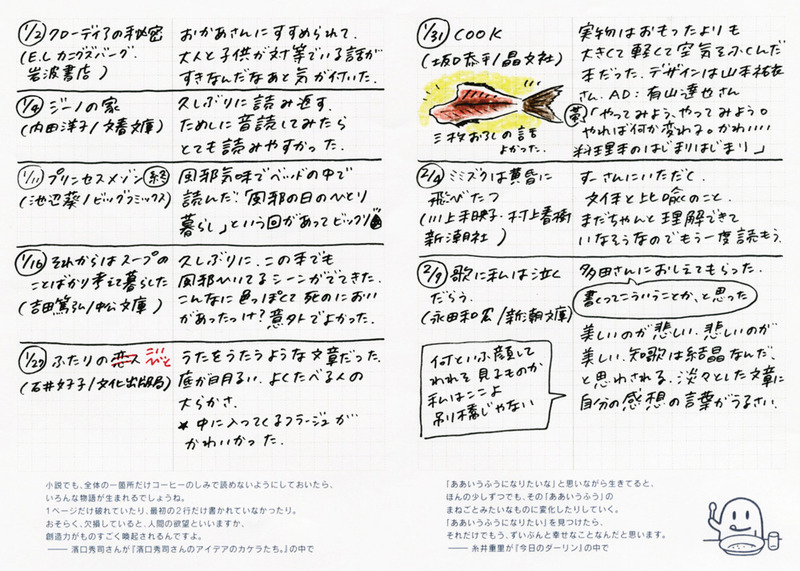 1/2 クローディアの秘密
(E.L カニグズバーグ.
岩波書店)
おかあさんにすすめられて.
大人と子供が対等でいる話が
すきなんだなあと気が付いた.
1/9 ジーノの家
(内田洋子/文春文庫)
久しぶりに読み返す.
ためしに音読してみたら
とても読みやすかった.
1/11 プリンセスメゾン 終
(池辺葵/ビッグコミックス)
風邪気味でベッドの中で
読んだ.「風邪の日のひとり
暮らし」という回があってビックリ
1/16 それからはスープの
ことばかり考えて暮らした
(吉田篤弘/中公文庫)
久しぶりに.この本でも
風邪ひいてるシーンがでてきた.
こんなに色っぽとて死のにおい
があったっけ?意外でよかった.
1/27 ふたりの恋人 こいびと
(石井好子/文化出版局)
うたをうたうような文章だった.
底が明るい.よくたべる人の
大らかさ.
* 中に入ってくるフラージュが
かわいかった.
小説でも、全体の一箇所だけコーヒーのしみで読めないようにしておいたら、
いろんな物語が生まれるでしょうね。
1ページだけ破れていたり、最初の2行だけ書かれていなかったり。
おそらく、欠損していると、人間の欲望といいますか、
創造力がものすごく喚起されるんですよ。
—— 濱口秀司さんが『濱口秀司さんのアイデアのカケラたち。』の中で
1/31 COOK
(坂口恭平/晶文社)
三枚おろしの話
よかった.
実物はおもったよりも
大きくて軽くて空気をふくんだ
本だった.デザインは山本祐衣
さん.AD:有山達也さん
「やってみよう、やってみよう。
やれば何か変わる。かわいい
料理本のはじまりはじまり」
2/4 ミミズクは黄昏に
飛びたつ
(川上未映子・村上春樹
新潮社)
すーさんにいただく.
文体と比喩のこと.
まだちゃんと理解できて
いなそうなのでもう一度読もう.
2/9 歌に私は泣く
だらう.
(永田和宏/新潮文庫)
何といふ顔して
われを見るものか
私はここよ
吊り橋じゃない
多田さんにおしえてもらった.
書くってこういうことか、と思った
美しいのが悲しい.悲しいのが
美しい.短歌は結晶なんだ.
と思わされる.淡々とした文章に
自分の感想の言葉がうるさい.
「ああいうふうになりたいな」と思いながら生きてると、
ほんの少しずつでも、その「ああいうふう」の
まねごとみたいなものに変化したりしていく。
「ああいうふうになりたい」を見つけたら、
それだけでもう、ずいぶんと幸せなことなんだと思います。
—— 糸井重里が『今日のダーリン』の中で